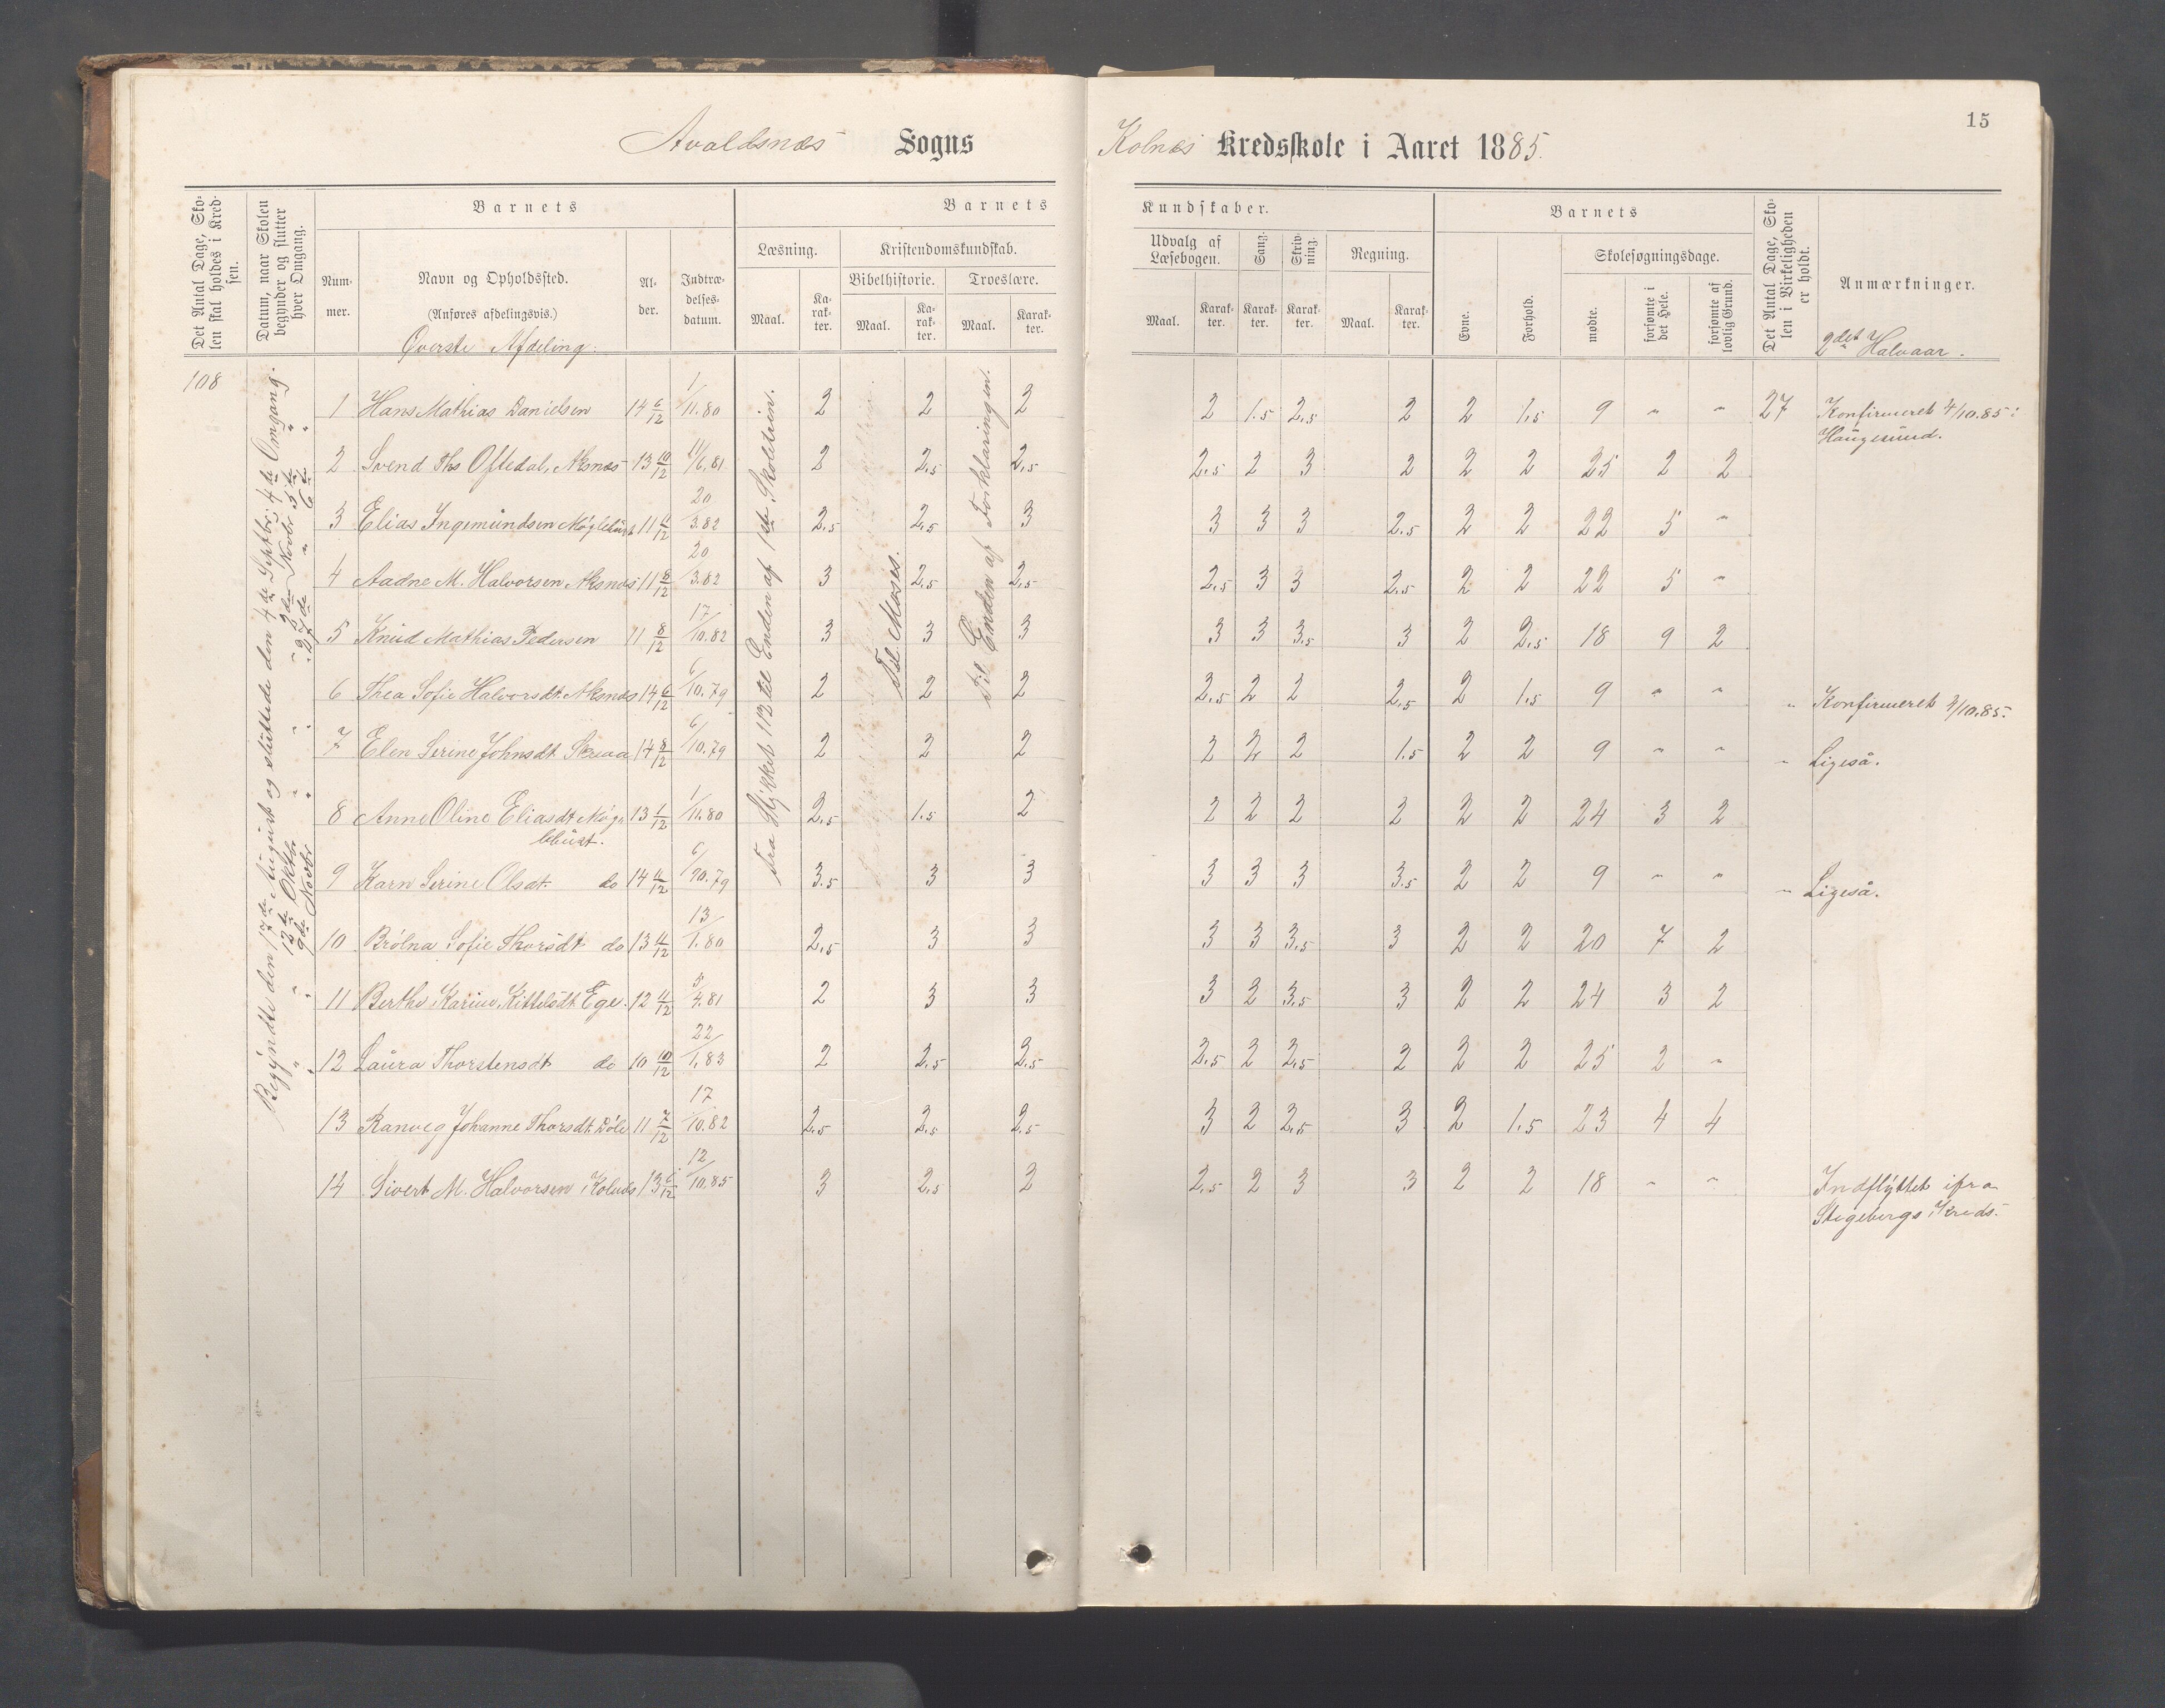 15
Avaldsnæs Sogns
Kolnæs Kredsskole i Aaret 1885.
Det Antal Dage, Skolen skal holdes i Kredsen.
Datum, naar Skolen begynder og slutter hver Omgang.
Barnets
Nummer.
Navn og Opholdssted.
(Anføres afdelingsvis.)
Øverste Afdeling.
Alder.
Indtrædelsesdatum.
Barnets
Kundskaber.
Læsning.
Maal.
Karakter.
Kristendomskundskab.
Bibelhistorie.
Maal.
Karakter.
Troeslære.
Maal.
Karakter.
Udvalg af Læsebogen.
Maal.
Karakter.
Sang.
Karakter.
Skrivning.
Karakter.
Regning.
Maal.
Karakter.
Barnets
Evne.
Forhold.
Skolesøgningsdage.
mødte.
forsømte i det Hele.
forsømte af lovlig Grund.
Det Antal Dage, Skolen i Virkeligheden er holdt.
Anmærkninger.
2det Halvaar.
108
Begyndte den 17de August og sluttede den 4de Septbr. 4de Omgang.
" " 12te Oktbr " " 3den Novbr 5te "
" " 9de Novbr " " 27de " 6te "
Fra Stykket 113 til Enden af 1ste Skoletrin.
Til Moses.
Til Enden af Forklaringen.
1 Hans Mathias Danielsen 14 6/12 1/11.80 2 2 2 2 1.5 2,5 2 2 1,5 9 " " 27 Konfirmeret 4/10.85 i
Haugesund.
2 Svend Ths Oftedal, Aksnæs 13 10/12 11/6.81 2 2,5 2,5 2,5 2 3 2 2 2 25 2 2
3 Elias Ingemundsen Møglebust 11 11/12 20/3.82 2,5 2,5 3 3 3 3 2,5 2 2 22 5 "
4 Aadne M. Halvorsen Aksnæs 11 8/12 20/3.82 3 2,5 2,5 2,5 3 3 2,5 2 2 22 5 "
5 Knud Mathias Pedersen 11 8/12 17/10.82 3 3 3 3 3 3,5 3 2 2,5 18 9 2
6 Thea Sofie Halvorsdt. Aksnæs 14 6/12 6/10.79 2 2 2 2,5 2 2 2,5 2 1.5 9 " " " Konfirmeret 4/10.85.
7 Elen Serine Johnsdt 14 8/12 6/10.79 2 2 2 2 2 2 1.5 2 2 9 " " " Ligeså.
8 Anne Oline Eliasdt Møg- 13 1/12 1/11.80 2,5 1.5 2 2 2 2 2 2 2 24 3 2
lebust.
9 Karn Serine Olsdt. do 14 11/12 6/10.79 3.5 3 3 3 3 3 3.5 2 2 9 " " " Ligeså.
10 Brølna Sofie Thorsdt do 13 11/12 13/1.80 2,5 3 3 3 3 3,5 3 2 2 20 7 2
11 Berthe Karine Kittelsdt. Ege. 12 11/12 5/4.81 2 3 3 3 2 3,5 3 2 2 24 3 2
12 Laura Thorstensdt do 10 10/12 22/1.83 2 2,5 2,5 2,5 2 2,5 2 2 2 25 2 "
13 Ranveg Johanne Thorsdt. Døle 11 7/12 17/10.82 2,5 2,5 2,5 3 2 2,5 3 2 1.5 23 4 4
14 Sivert M. Halvorsen Kolnæs 13 6/12 12/10.85 3 2,5 2 2,5 2 3 3 2 2 18 " " Indflyttet ifra
Stegebergs Kreds.